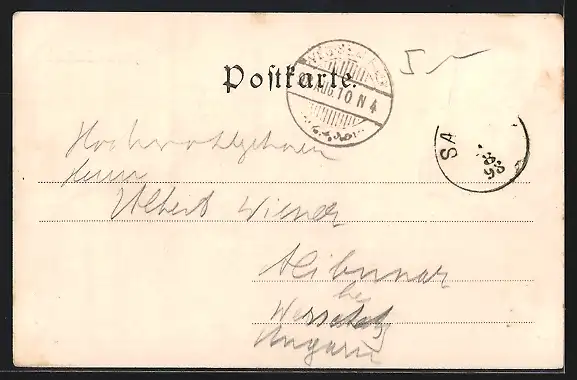 Postkarte.
AUG. 10 N 4
SA
98
5
Hochwohlgeboren
Herrn
Albert Wiener
Alibunar
bei
Werschetz
Ungarn